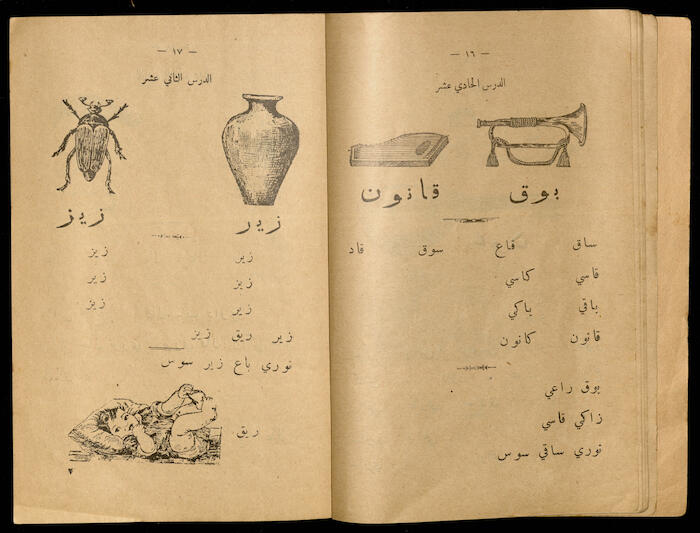 — ١٦ —
الدرس الحادي عشر
بوق قانون
ساق قاع سوق قاد
قاسي كاسي
باقي باكي
قانون كانون
بوق راعي
زاكي قاسي
نوري ساقي سوس
— ١٧ —
الدرس الثاني عشر
زير زيز
زير زيز
زيز زير
زير زيز
زير ريق زيز
نوري باع زير سوس
ريق
٢